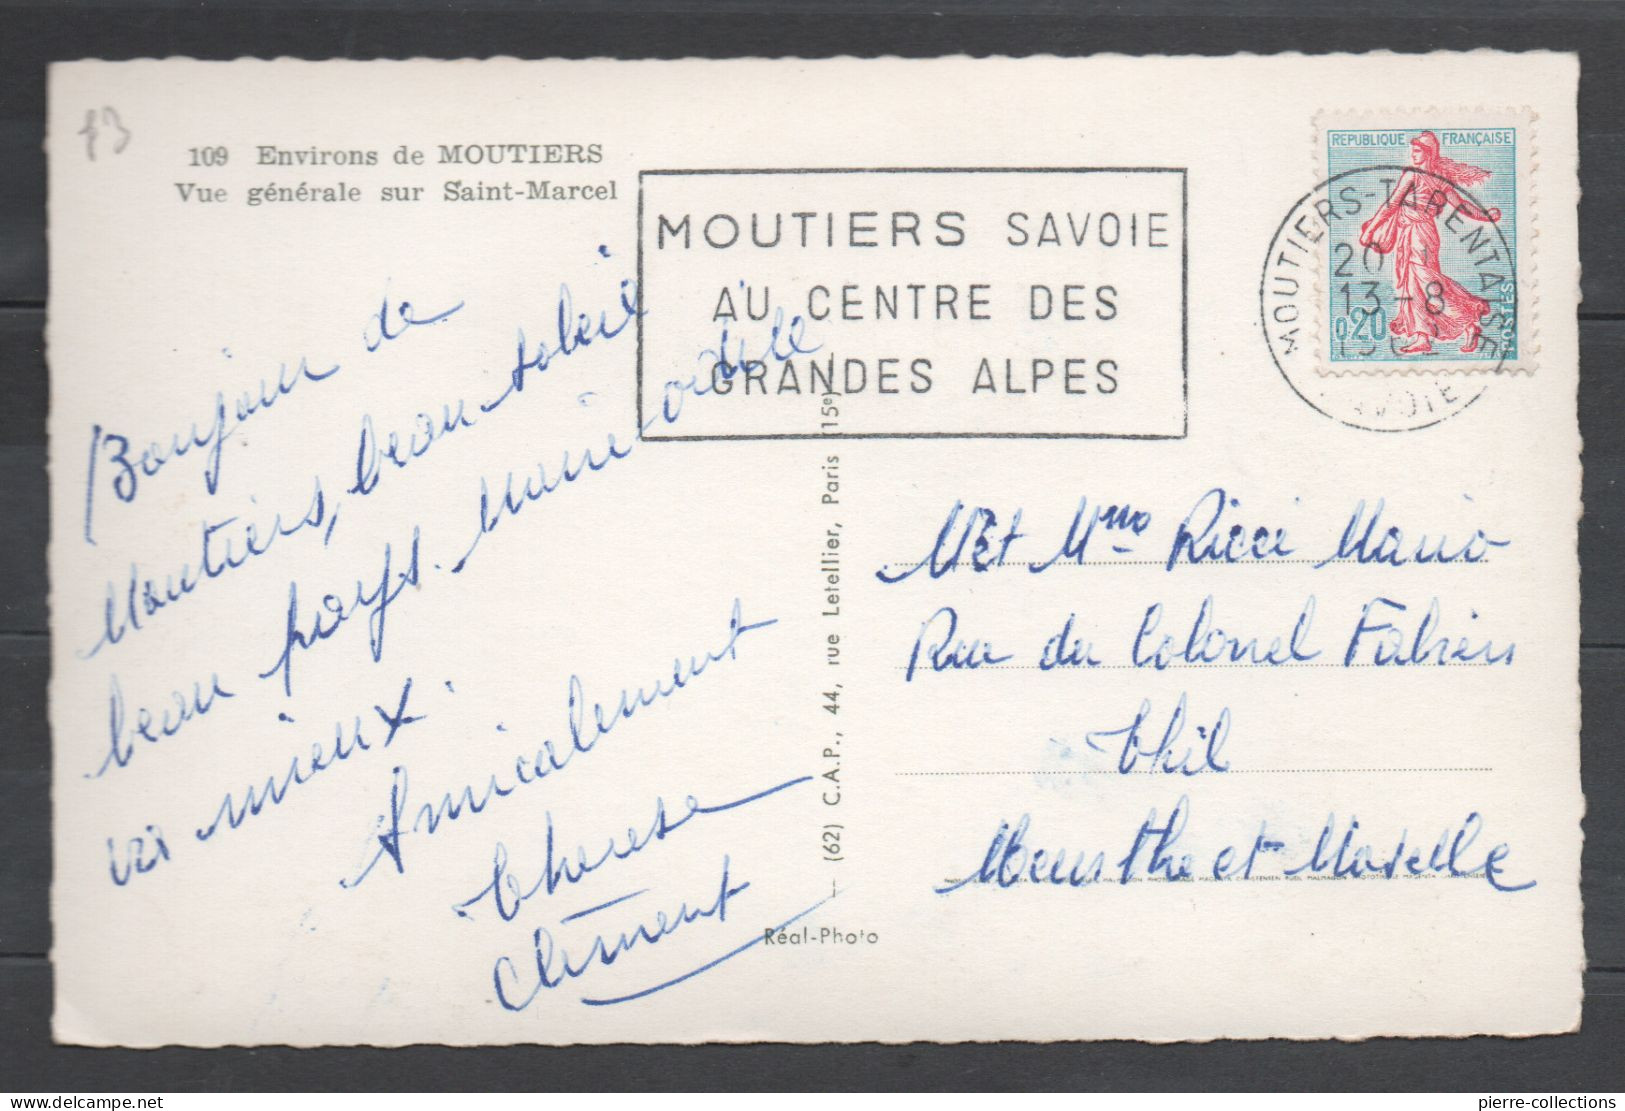 13
109 Environs de MOUTIERS
Vue générale sur Saint-Marcel
MOUTIERS SAVOIE
AU CENTRE DES
GRANDES ALPES
REPUBLIQUE FRANÇAISE
0,20
POSTES
MOUTIERS-TARENTAISE
20
13-8
1962
SAVOIE
Bonjour de
Moutiers, beau soleil
beau pays. Marie odile
va mieux.
Amicalement
Therese
Clément
(62) C.A.P., 44, rue Letellier, Paris (15e)
Réal-Photo
Mr et Mme Ricci Mario
Rue du Colonel Fabien
Thil
Meurthe et Moselle
pierre-collections